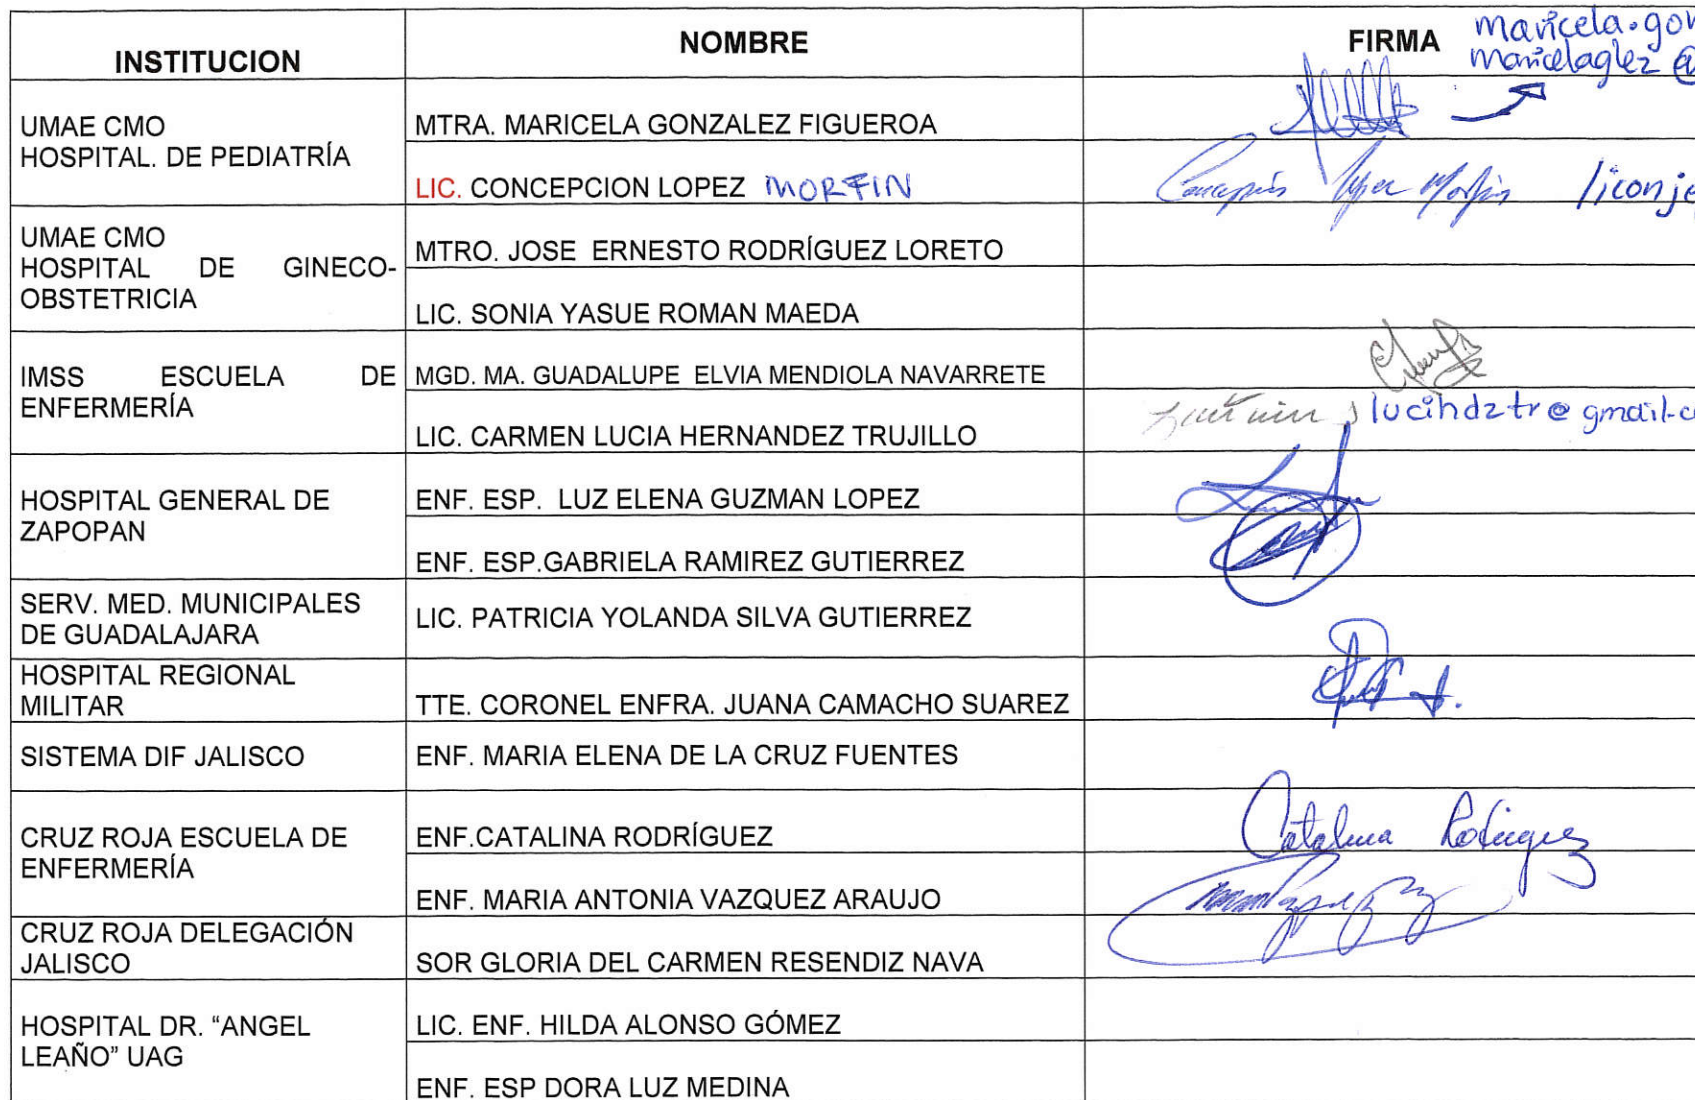 INSTITUCION
NOMBRE
FIRMA
maricela.gon
maricelaglez @
UMAE CMO
HOSPITAL. DE PEDIATRÍA
MTRA. MARICELA GONZALEZ FIGUEROA
LIC. CONCEPCION LOPEZ MORFIN
Concepción López Morfín liconje
UMAE CMO
HOSPITAL DE GINECO-
OBSTETRICIA
MTRO. JOSE ERNESTO RODRÍGUEZ LORETO
LIC. SONIA YASUE ROMAN MAEDA
IMSS ESCUELA DE
ENFERMERÍA
MGD. MA. GUADALUPE ELVIA MENDIOLA NAVARRETE
LIC. CARMEN LUCIA HERNANDEZ TRUJILLO
lucihdztr@gmail.c
HOSPITAL GENERAL DE
ZAPOPAN
ENF. ESP. LUZ ELENA GUZMAN LOPEZ
ENF. ESP.GABRIELA RAMIREZ GUTIERREZ
SERV. MED. MUNICIPALES
DE GUADALAJARA
LIC. PATRICIA YOLANDA SILVA GUTIERREZ
HOSPITAL REGIONAL
MILITAR
TTE. CORONEL ENFRA. JUANA CAMACHO SUAREZ
SISTEMA DIF JALISCO
ENF. MARIA ELENA DE LA CRUZ FUENTES
CRUZ ROJA ESCUELA DE
ENFERMERÍA
ENF.CATALINA RODRÍGUEZ
Catalina Rodríguez
ENF. MARIA ANTONIA VAZQUEZ ARAUJO
CRUZ ROJA DELEGACIÓN
JALISCO
SOR GLORIA DEL CARMEN RESENDIZ NAVA
HOSPITAL DR. “ANGEL
LEAÑO” UAG
LIC. ENF. HILDA ALONSO GÓMEZ
ENF. ESP DORA LUZ MEDINA